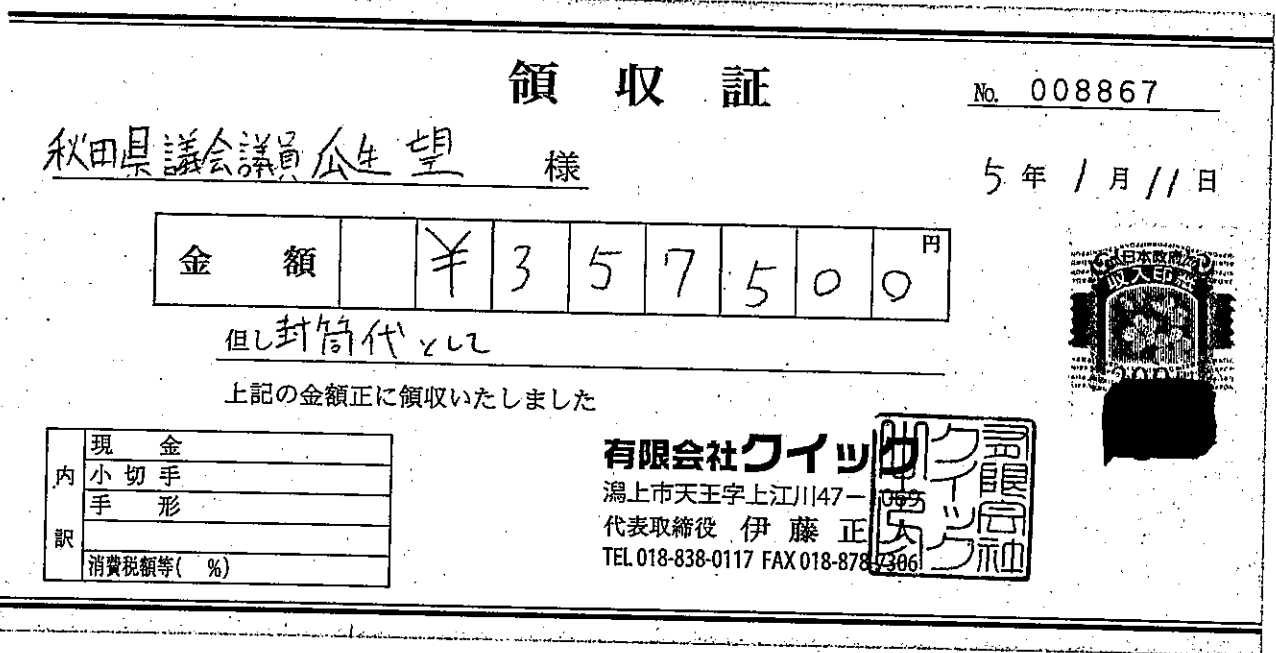 領収証
No. 008867
秋田県議会議員 瓜生 望 様
5年1月11日
金額 ¥357500円
但し封筒代として
上記の金額正に領収いたしました
日本政府
収入印紙
200
内訳
現金
小切手
手形
消費税額等( %)
有限会社クイック
潟上市天王字上江川47-069
代表取締役 伊藤正人
TEL 018-838-0117 FAX 018-878-7306
有限会社
クイック